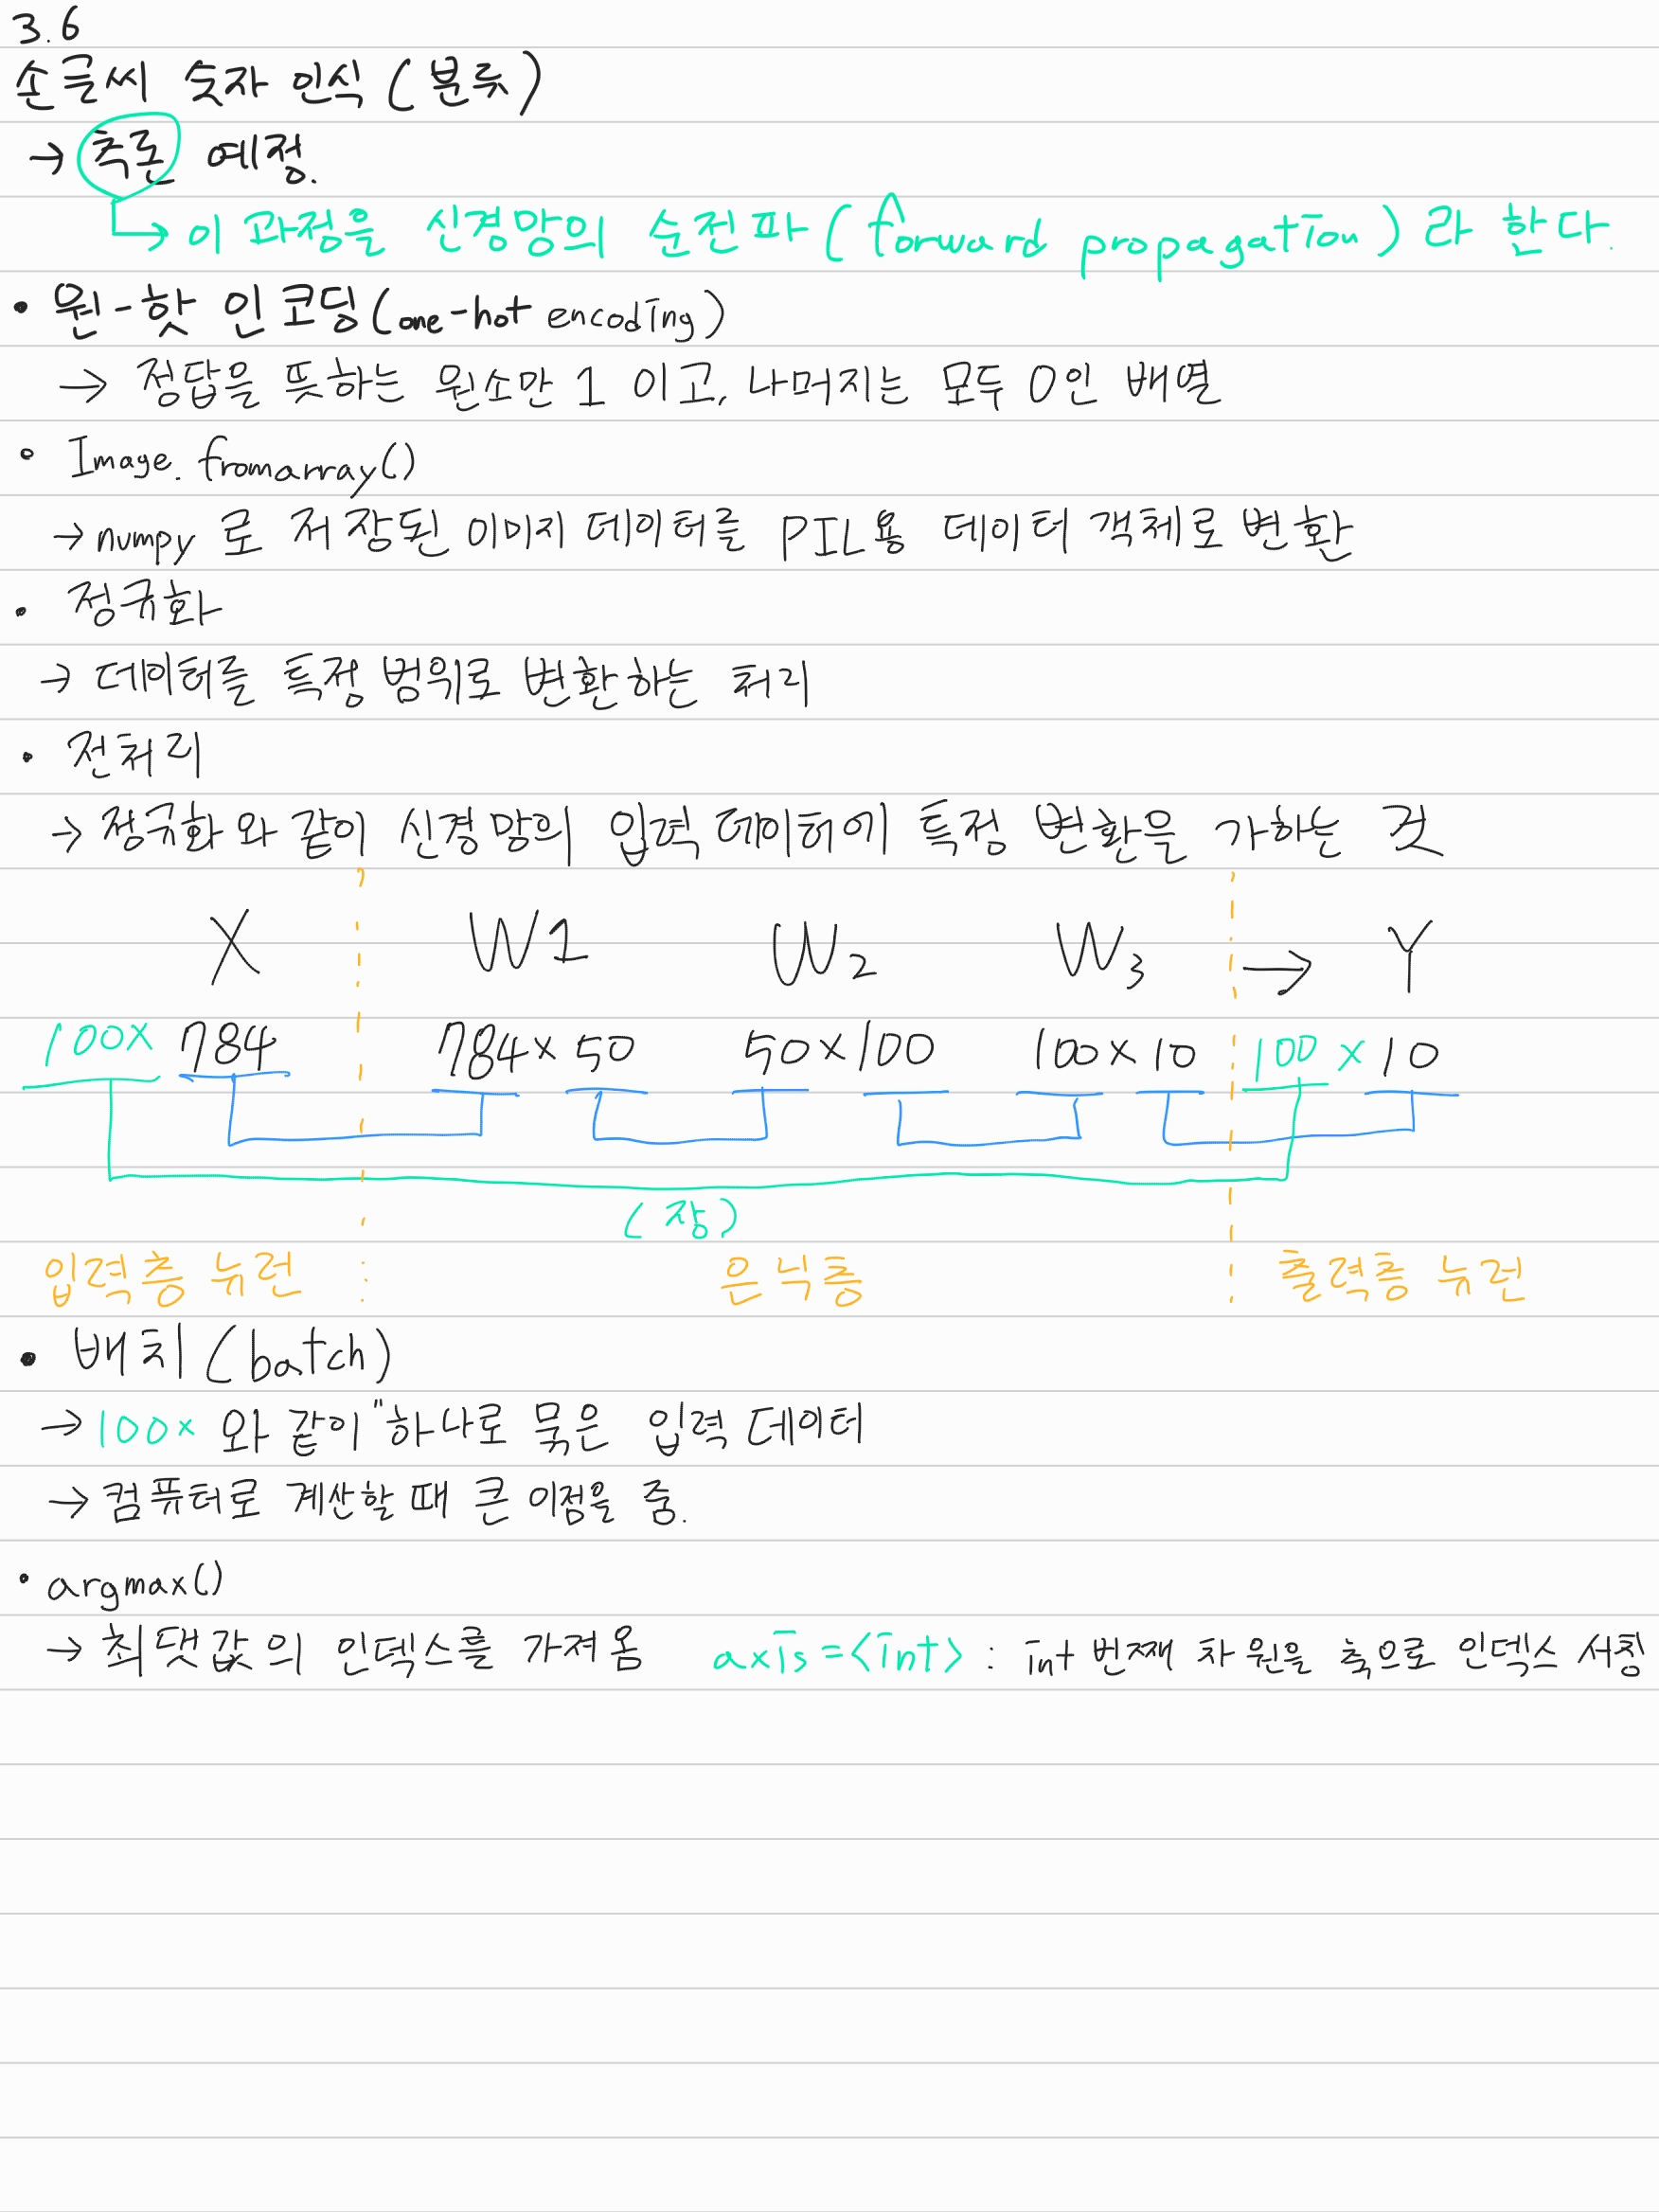 3.6
손글씨 숫자 인식 (분류)
→ 추론 예정.
→ 이 과정을 신경망의 순전파 (forward propagation) 라 한다.
• 원-핫 인코딩 (one-hot encoding)
→ 정답을 뜻하는 원소만 1 이고, 나머지는 모두 0인 배열
• Image.fromarray()
→ numpy 로 저장된 이미지 데이터를 PIL용 데이터 객체로 변환
• 정규화
→ 데이터를 특정 범위로 변환하는 처리
• 전처리
→ 정규화와 같이 신경망의 입력 데이터에 특정 변환을 가하는 것
X W1 W2 W3 → Y
100× 784 784×50 50×100 100×10 100 × 10
(장)
입력층 뉴런 은닉층 출력층 뉴런
• 배치 (batch)
→ 100× 와 같이 "하나로 묶은 입력 데이터
→ 컴퓨터로 계산할 때 큰 이점을 줌.
• argmax()
→ 최댓값의 인덱스를 가져옴 axis=<int> : int 번째 차원을 축으로 인덱스 서칭